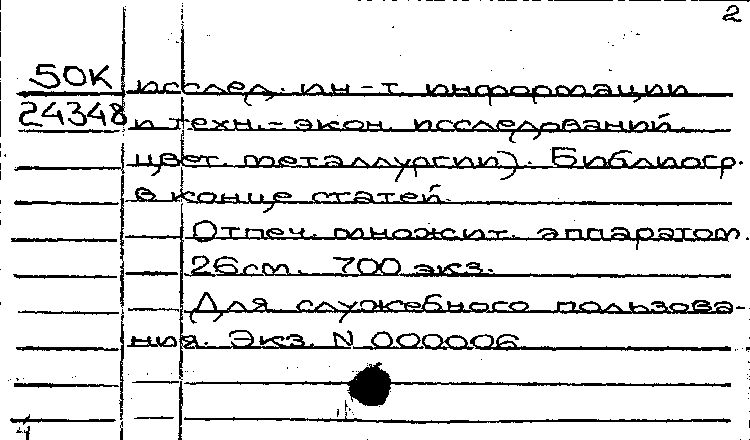 2
50К исслед. ин-т информации
24348 и техн.-экон. исследований
цвет. металлургии). Библиогр.
в конце статей.
Отпеч. множит. аппаратом.
26см. 700 экз.
Для служебного пользова-
ния. Экз. N 000006
4